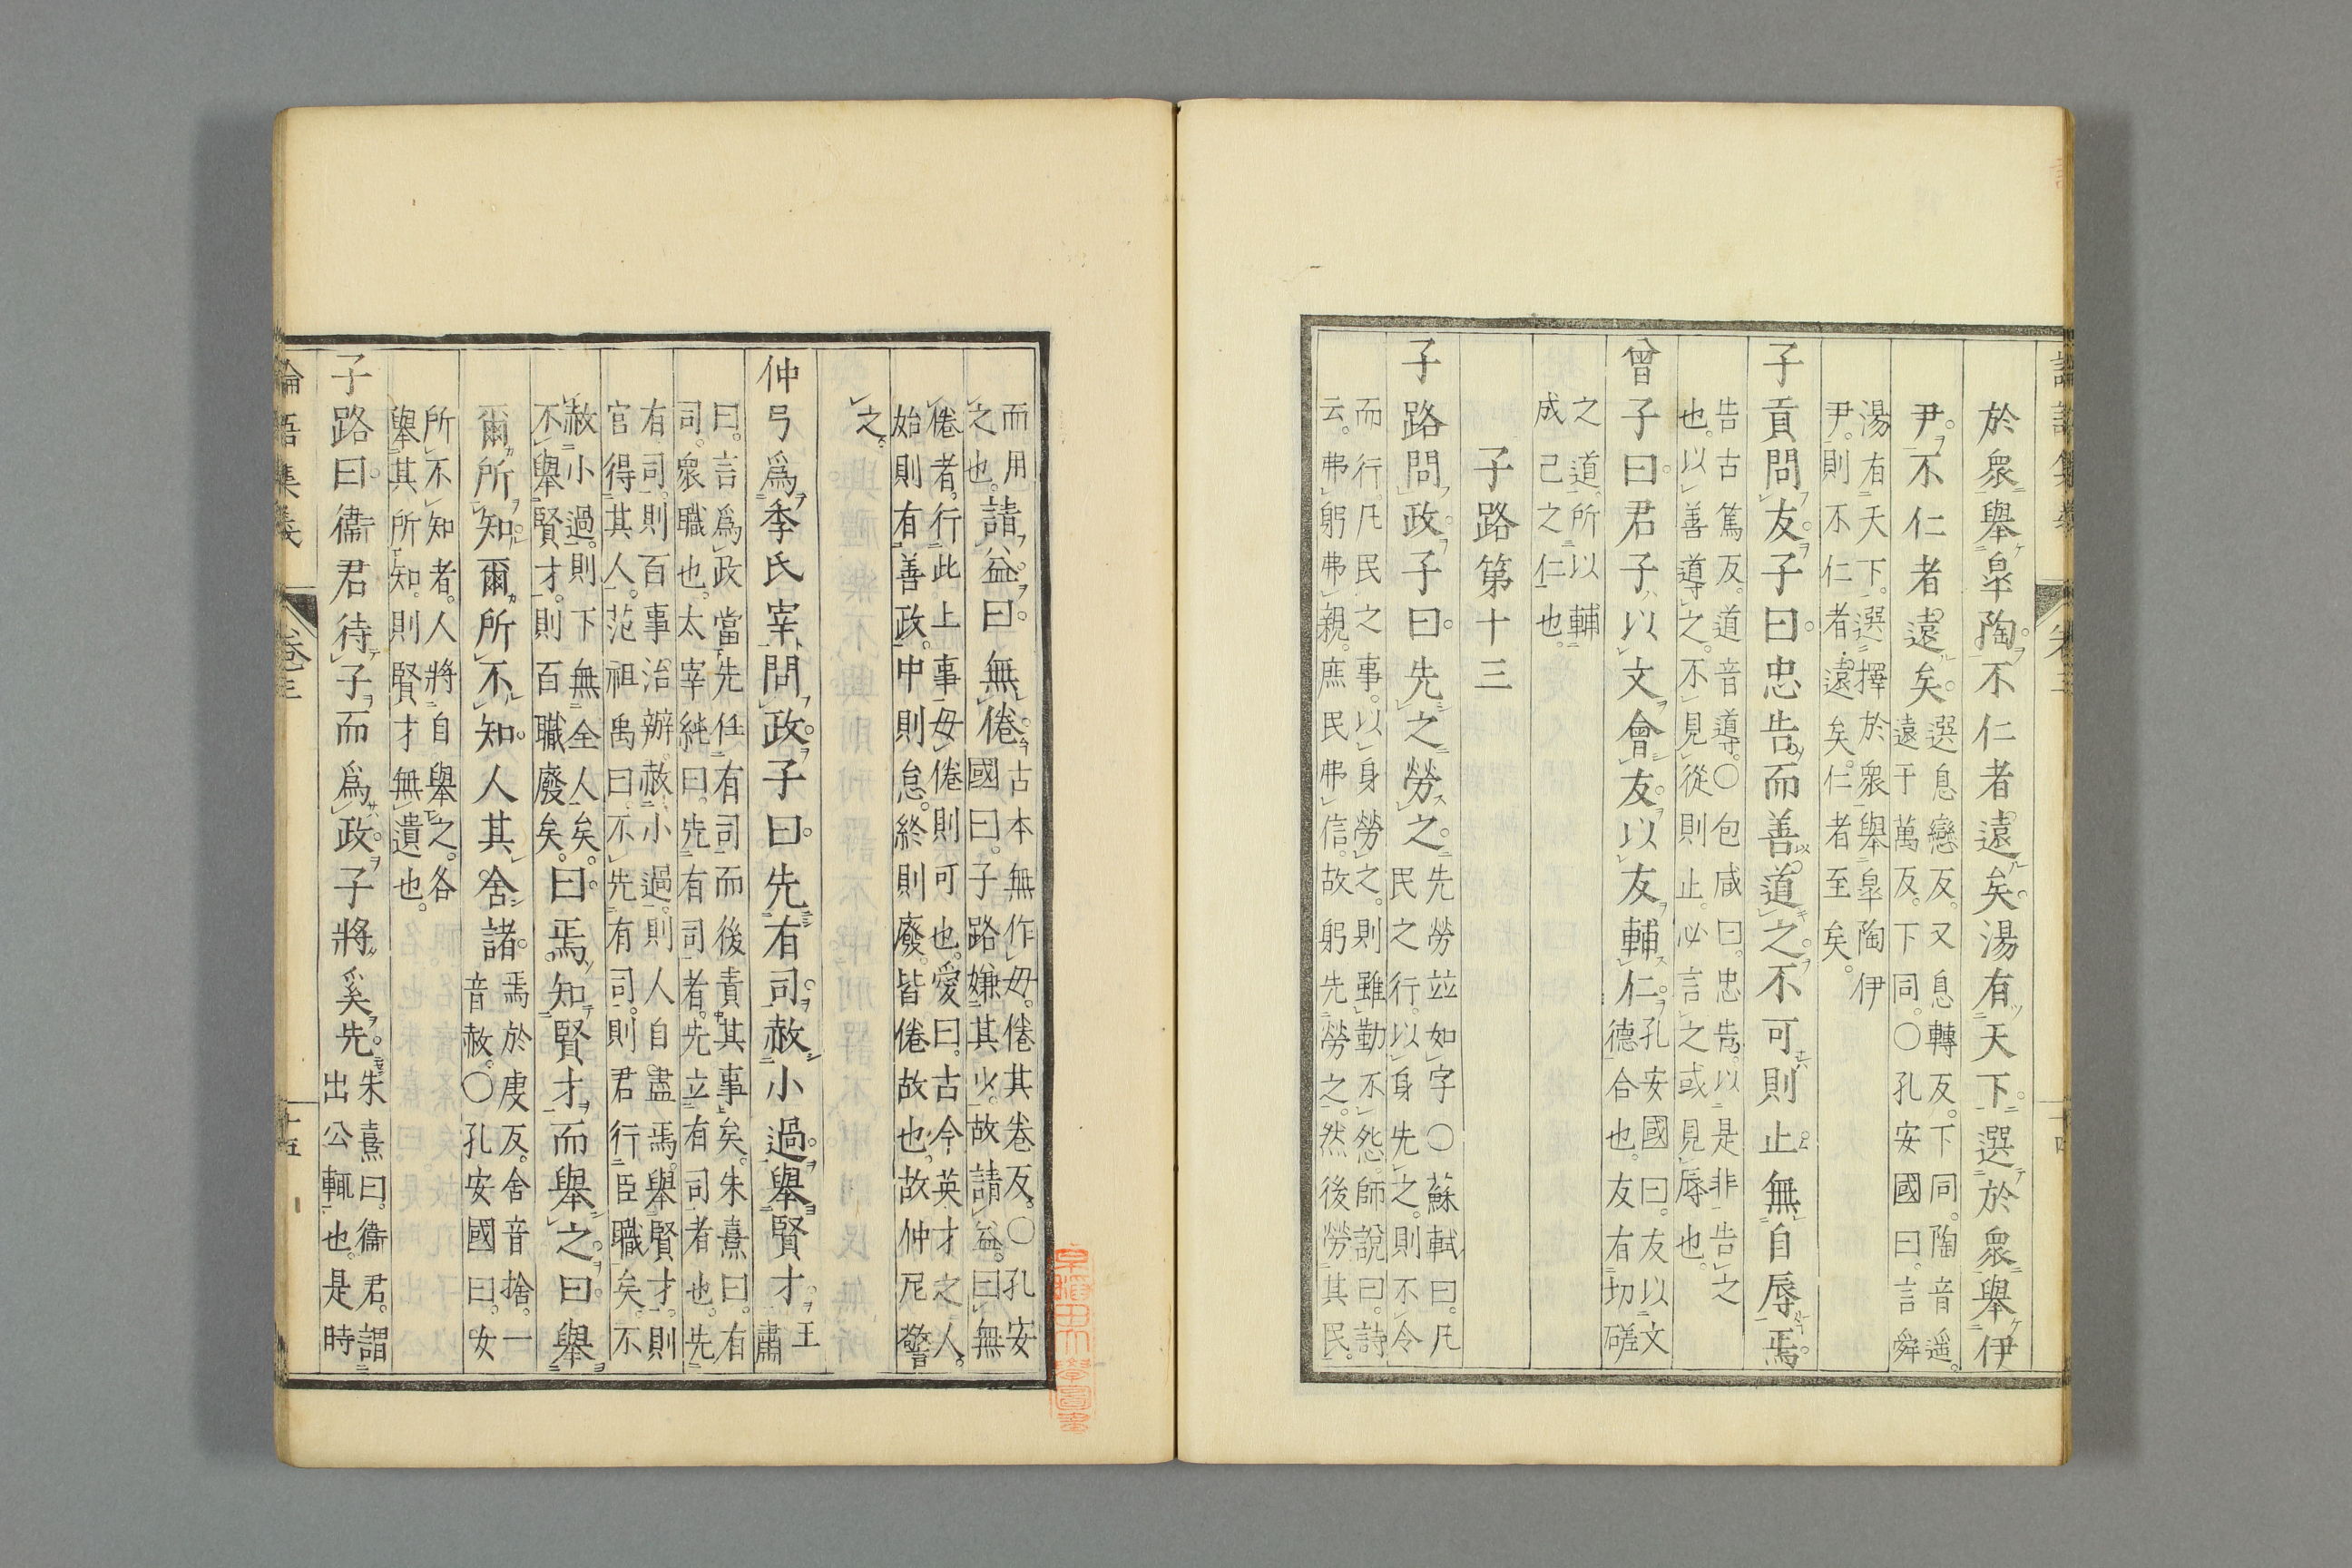 於衆舉皐陶不仁者遠矣。湯有天下。選於衆舉伊
尹。不仁者遠矣。
選息戀反。又息轉反。下同。陶音遥。
遠于萬反。下同。○孔安國曰。言舜
湯有天下。選擇於衆舉皐陶伊
尹。則不仁者遠矣。仁者至矣。
子貢問友。子曰。忠告而善道之。不可則止。無自辱焉。
告古篤反。道音導。○包咸曰。忠告。以是非告之
也。以善導之。不見從則止。必言之或見辱也。
曾子曰。君子以文會友。以友輔仁。
孔安國曰。友以文
德合也。友有切磋
之道。所以輔
成己之仁也。
子路第十三
子路問政。子曰。先之勞之。
先勞並如字○蘇軾曰。凡
民之行。以身先之。則不令
而行。凡民之事。以身勞之。則雖勤不怨。師說曰。詩
云。弗躬弗親。庶民弗信。故躬先勞之。然後勞其民。
而用
之也。
請益。曰。無倦。
古本無作毋。倦其卷反。○孔安
國曰。子路嫌其少。故請益。曰無
倦者。行此上事毋倦則可也。愛曰。古今英才之人。
始則有善政。中則怠。終則廢。皆倦故也。故仲尼警
之。
仲弓爲季氏宰。問政。子曰。先有司。赦小過。舉賢才。
王
肅
曰。言爲政當先任有司而後責其事矣。朱熹曰。有
司。衆職也。太宰純曰。先有司者。先立有司者也。先
有司。則百事治辦。赦小過。則人自盡焉。舉賢才。則
官得其人。范祖禹曰。不先有司。則君行臣職矣。不
赦小過。則下無全人矣。
不舉賢才。則百職廢矣。
曰。焉知賢才而舉之。曰。舉
爾所知。爾所不知。人其舍諸。
焉於虔反。舍音捨。一
音赦。○孔安國曰。女
所不知者。人將自舉之。各
舉其所知。則賢才無遺也。
子路曰。衞君待子而爲政。子將奚先。
朱熹曰。衞君。謂
出公輒也。是時
論語集義
卷三
十五
早稻田大學圖書